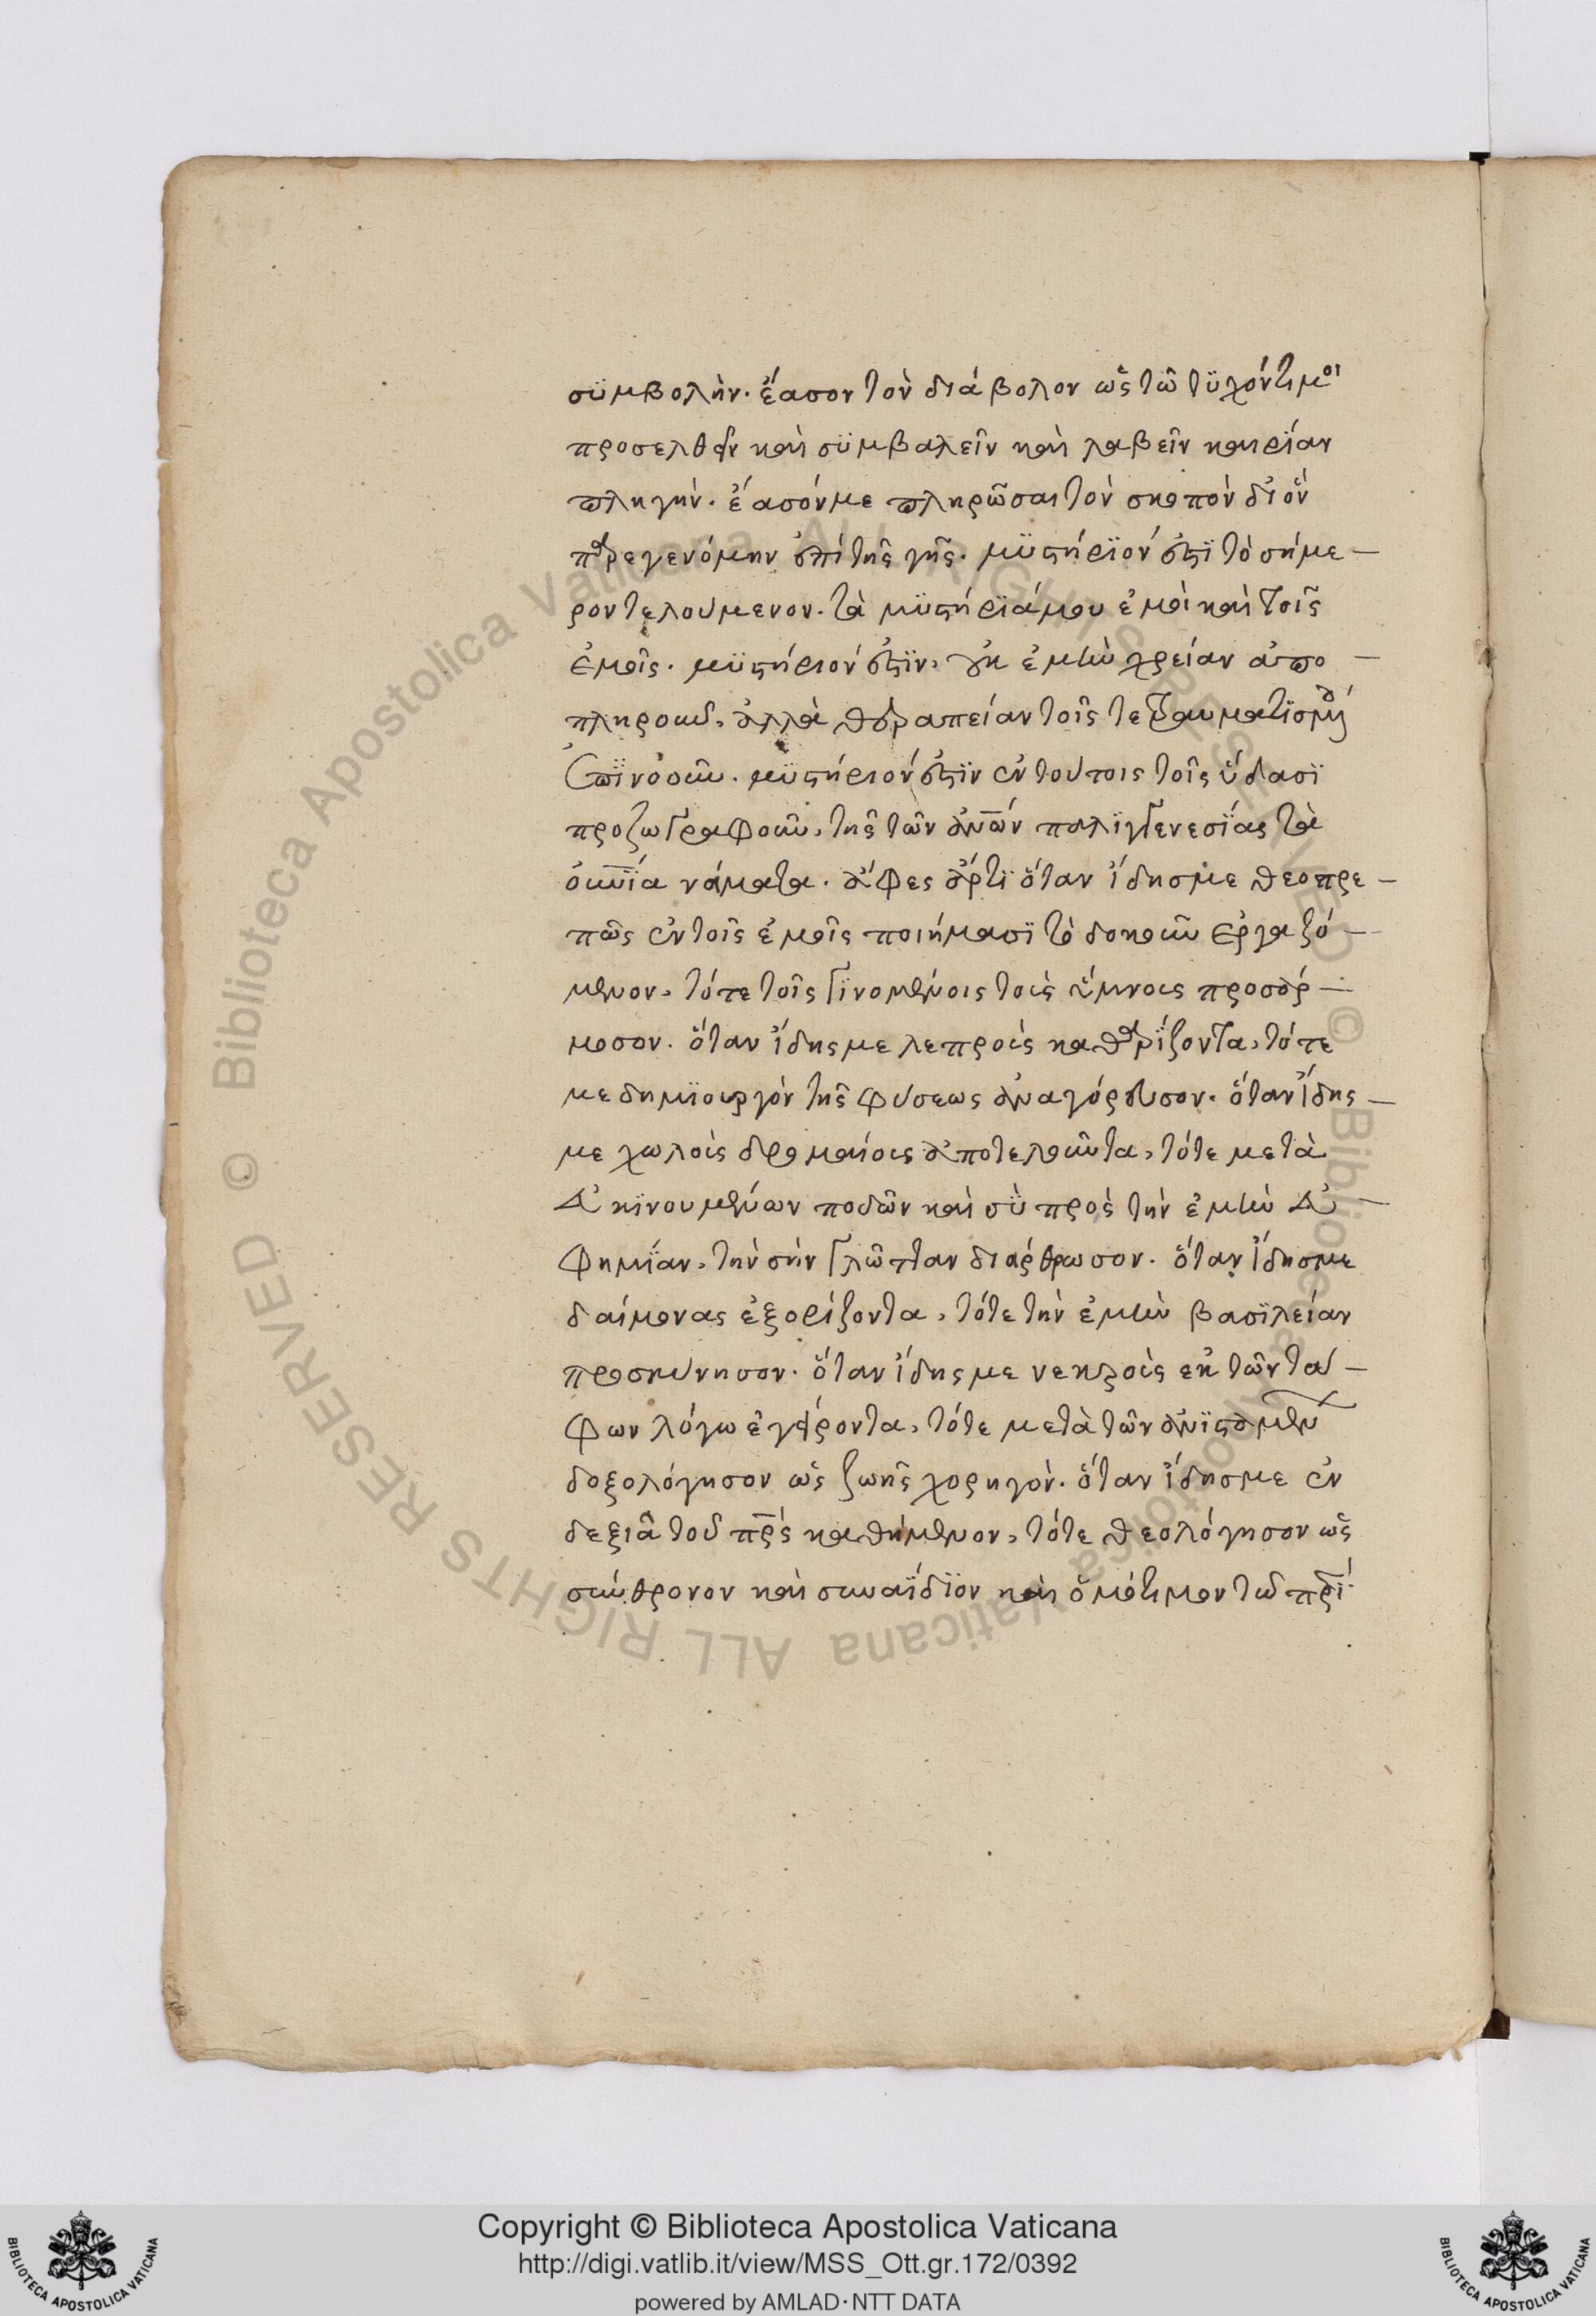 σϋμβολὴν. ἔασον τὸν διάβολον ὡς τῶ τϋχόντι μοι
προσελθεῖν καὶ σϋμβαλεῖν καὶ λαβεῖν καιρίαν
πληγήν. ἔασόν με πληρῶσαι τὸν σκοπὸν δι ὃν
παρεγενόμην ἐπὶ τῆς γῆς. μϋστήριόν ἐστϊ τὸ σήμε-
ρον τελούμενον. τὰ μϋστήριά μου ἐμοὶ καὶ τοῖς
ἐμοῖς. μϋστήριόν ἐστϊν, οὐκ ἐμὴν χρείαν ἀπο-
πληροῦν, ἀλλὰ θεραπείαν τοῖς τετραυματϊσμένοις
ἐπϊνοοῦν. μϋστήριόν ἐστϊν ἐν τούτοις τοῖς ὕδασϊ
προζωγραφοῦν, τῆς τῶν ἀνων παλϊγγενεσίας τὰ
οὐνϊα νάματα. ἄφες ἄρτϊ ὅταν ἴδης με θεοπρε-
πῶς ἐν τοῖς ἐμοῖς ποιήμασϊ τὸ δοκοῦν ἐργαζό-
μενον, τότε τοῖς γϊνομένοις τοὺς ὕμνους προσάρ-
μοσον. ὅταν ἴδης με λεπροὺς καθαρίζοντα, τότε
με δημϊουργὸν τῆς φύσεως ἀναγόρευσον. ὅταν ἴδης-
με χωλοὺς δρομαίους ἀποτελοῦντα, τότε μετὰ
εὐκϊνουμένων ποδῶν καὶ σϋ πρὸς τὴν ἐμὴν εὐ-
φημίαν, τὴν σὴν γλῶτταν διάρθρωσον. ὅταν ἴδης με
δαίμονας ἐξορίζοντα, τότε τὴν ἐμὴν βασϊλείαν
προσκύνησον. ὅταν ἴδης με νεκροὺς ἐκ τῶν τά-
φων λόγω ἐγείροντα, τότε μετὰ τῶν ἀνϊσταμένων
δοξολόγησον ὡς ζωῆς χορηγὸν. ὅταν ἴδης με ἐν
δεξιᾶ τοῦ πρς καθήμενον, τότε θεολόγησον ὡς
σύνθρονον καὶ συναΐδϊον καὶ ὁμότιμον τῶ πρϊ
© Biblioteca Apostolica Vaticana ALL RIGHTS RESERVED © Biblioteca Apostolica Vaticana ALL RIGHTS RESERVED
Copyright © Biblioteca Apostolica Vaticana
http://digi.vatlib.it/view/MSS_Ott.gr.172/0392
powered by AMLAD·NTT DATA
BIBLIOTECA APOSTOLICA VATICANA
BIBLIOTECA APOSTOLICA VATICANA